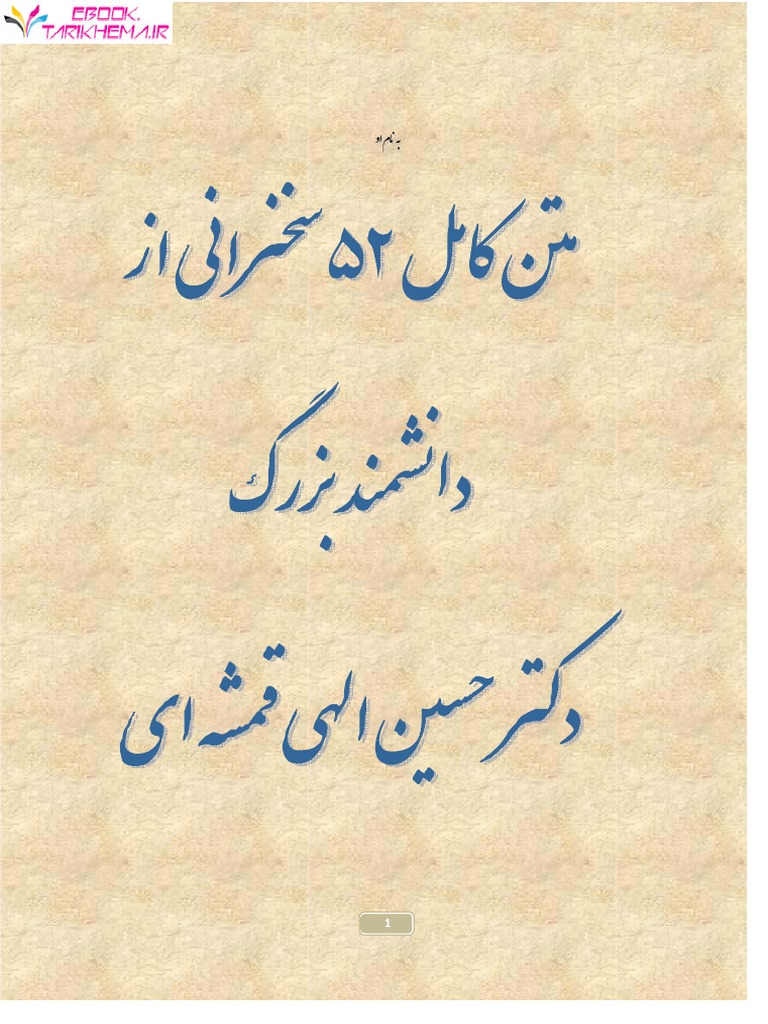 EBOOK.
TARIKHEMA.IR
به نام او
متن کامل ۵۲ سخنرانی از
دانشمند بزرگ
دکتر حسین الهی قمشه ای
1